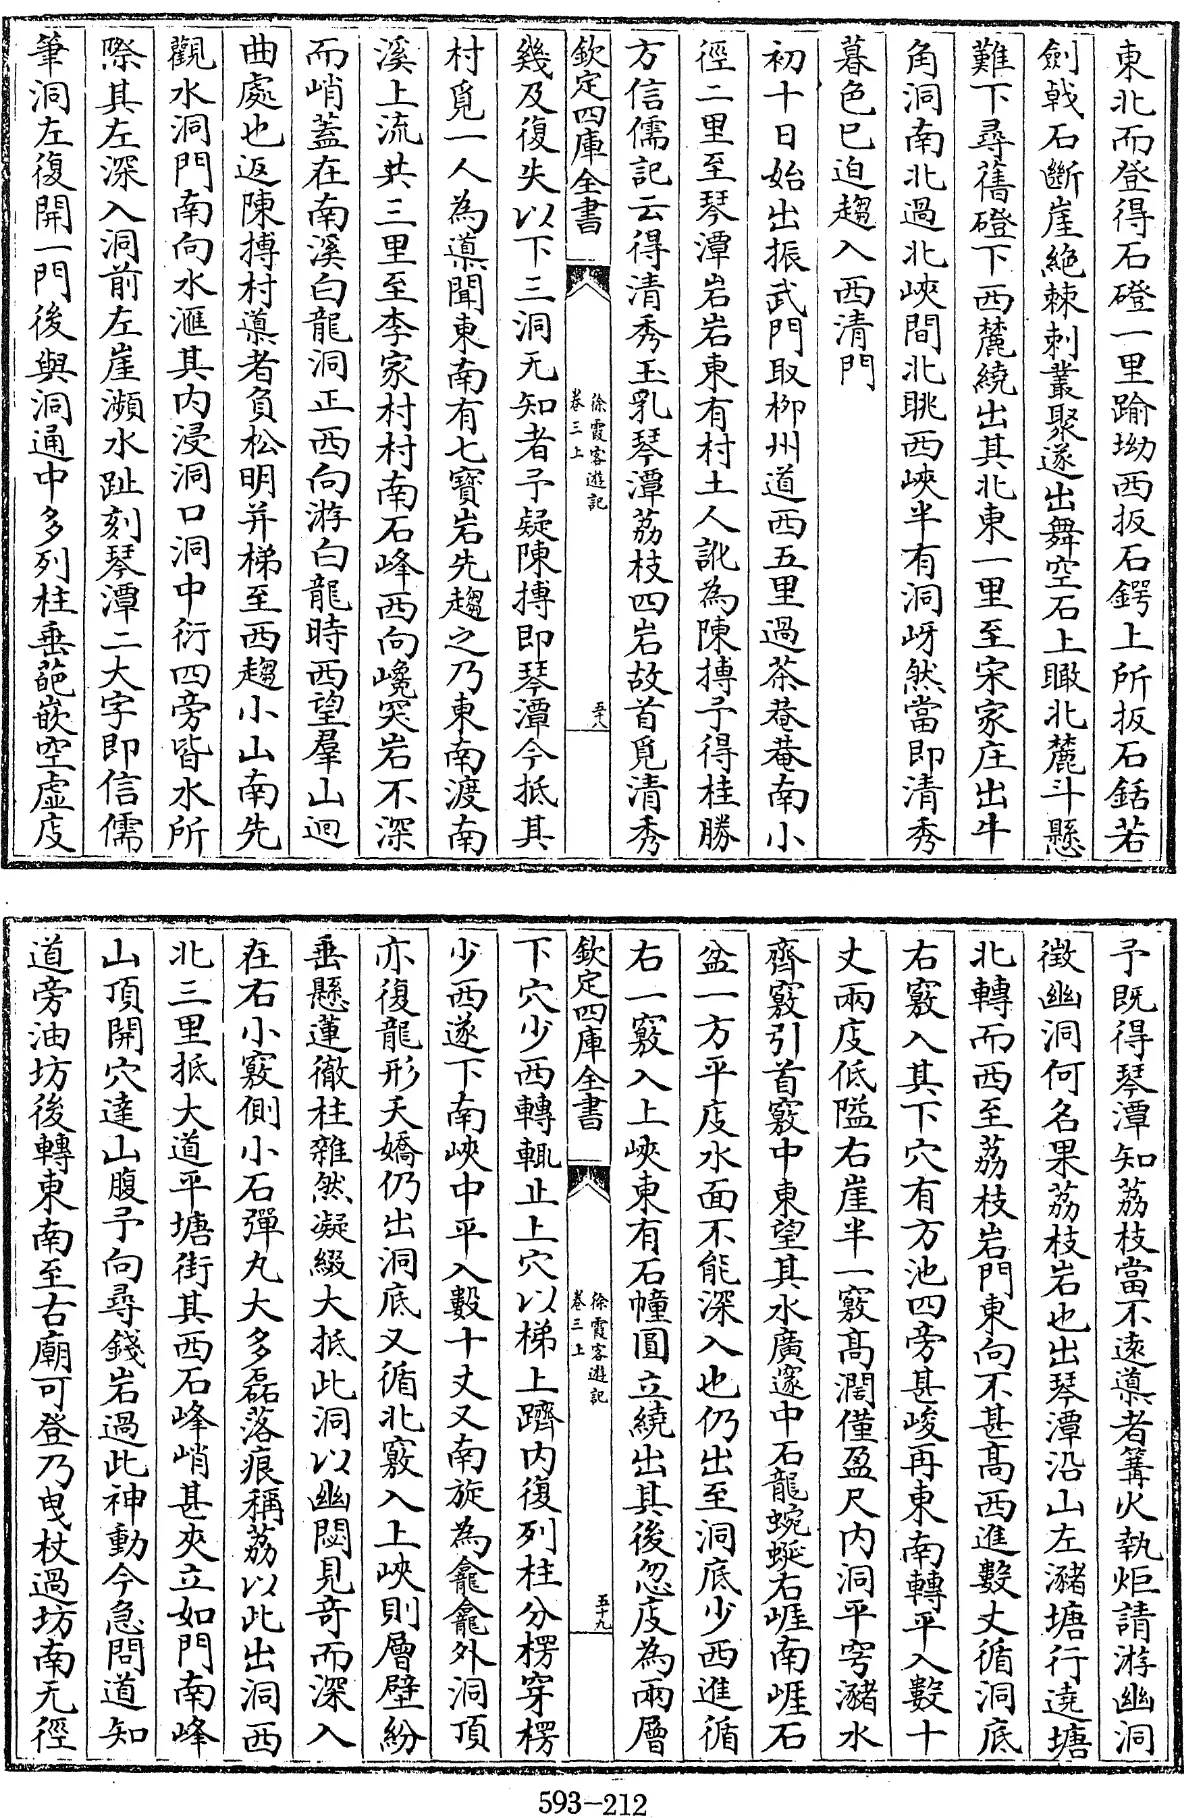 東北而登得石磴一里踰坳西扳石鍔上所扳石銛若
劍戟石斷崖絶棘刺叢聚遂出舞空石上瞰北麓斗懸
難下尋舊磴下西麓繞出其北東一里至宋家庄出牛
角洞南北過北峽間北眺西峽半有洞岈然當即清秀
暮色已迫趨入西清門
初十日始出振武門取柳州道西五里過茶菴菴南小
徑二里至琴潭岩岩東有村土人訛為陳摶予得桂勝
方信儒記云得清秀玉乳琴潭荔枝四岩故首覓清秀
欽定四庫全書
徐霞客遊記
卷三上
五十八
幾及復失以下三洞无知者予疑陳摶即琴潭今抵其
村覓一人為導聞東南有七寶岩先趨之乃東南渡南
溪上流共三里至李家村村南石峰西向巉突岩不深
而峭蓋在南溪白龍洞正西向游白龍時西望羣山迴
曲處也返陳摶村導者負松明并梯至西趨小山南先
觀水洞門南向水滙其内浸洞口洞中衍四旁皆水所
際其左深入洞前左崖瀕水趾刻琴潭二大字即信儒
筆洞左復開一門後與洞通中多列柱垂葩嵌空虛庋
予既得琴潭知荔枝當不遠導者篝火執炬請游幽洞
徵幽洞何名果荔枝岩也出琴潭沿山左瀦塘行遶塘
北轉而西至荔枝岩門東向不甚髙西進數丈循洞底
右竅入其下穴有方池四旁甚峻再東南轉平入數十
丈兩庋低隘右崖半一竅髙濶僅盈尺内洞平穹瀦水
齊竅引首竅中東望其水廣邃中石龍蜿蜒右崕南崕石
盆一方平庋水面不能深入也仍出至洞底少西進循
右一竅入上峽東有石幢圓立繞出其後忽庋為兩層
欽定四庫全書
徐霞客遊記
卷三上
五十九
下穴少西轉輒止上穴以梯上躋内復列柱分楞穿楞
少西遂下南峽中平入數十丈又南旋為龕龕外洞頂
亦復龍形夭嬌仍出洞底又循北竅入上峽則層壁紛
垂懸蓮徹柱雜然凝綴大抵此洞以幽閟見奇而深入
在右小竅側小石彈丸大多磊落痕稱荔以此出洞西
北三里抵大道平塘街其西石峰峭甚夾立如門南峰
山頂開穴達山腹予向尋錢岩過此神動今急問道知
道旁油坊後轉東南至古廟可登乃曳杖過坊南无徑
593-212